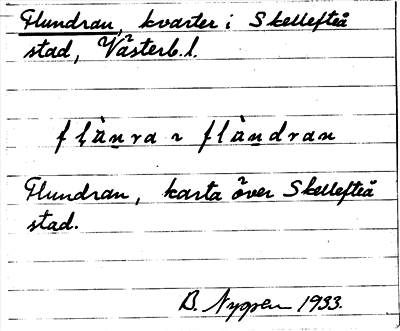 Flundran, kvarter i Skellefteå
stad, Västerb. l.
flän̲ra ~ flàn̲dran
Flundran, karta över Skellefteå
stad.
B. Nygren 1933.